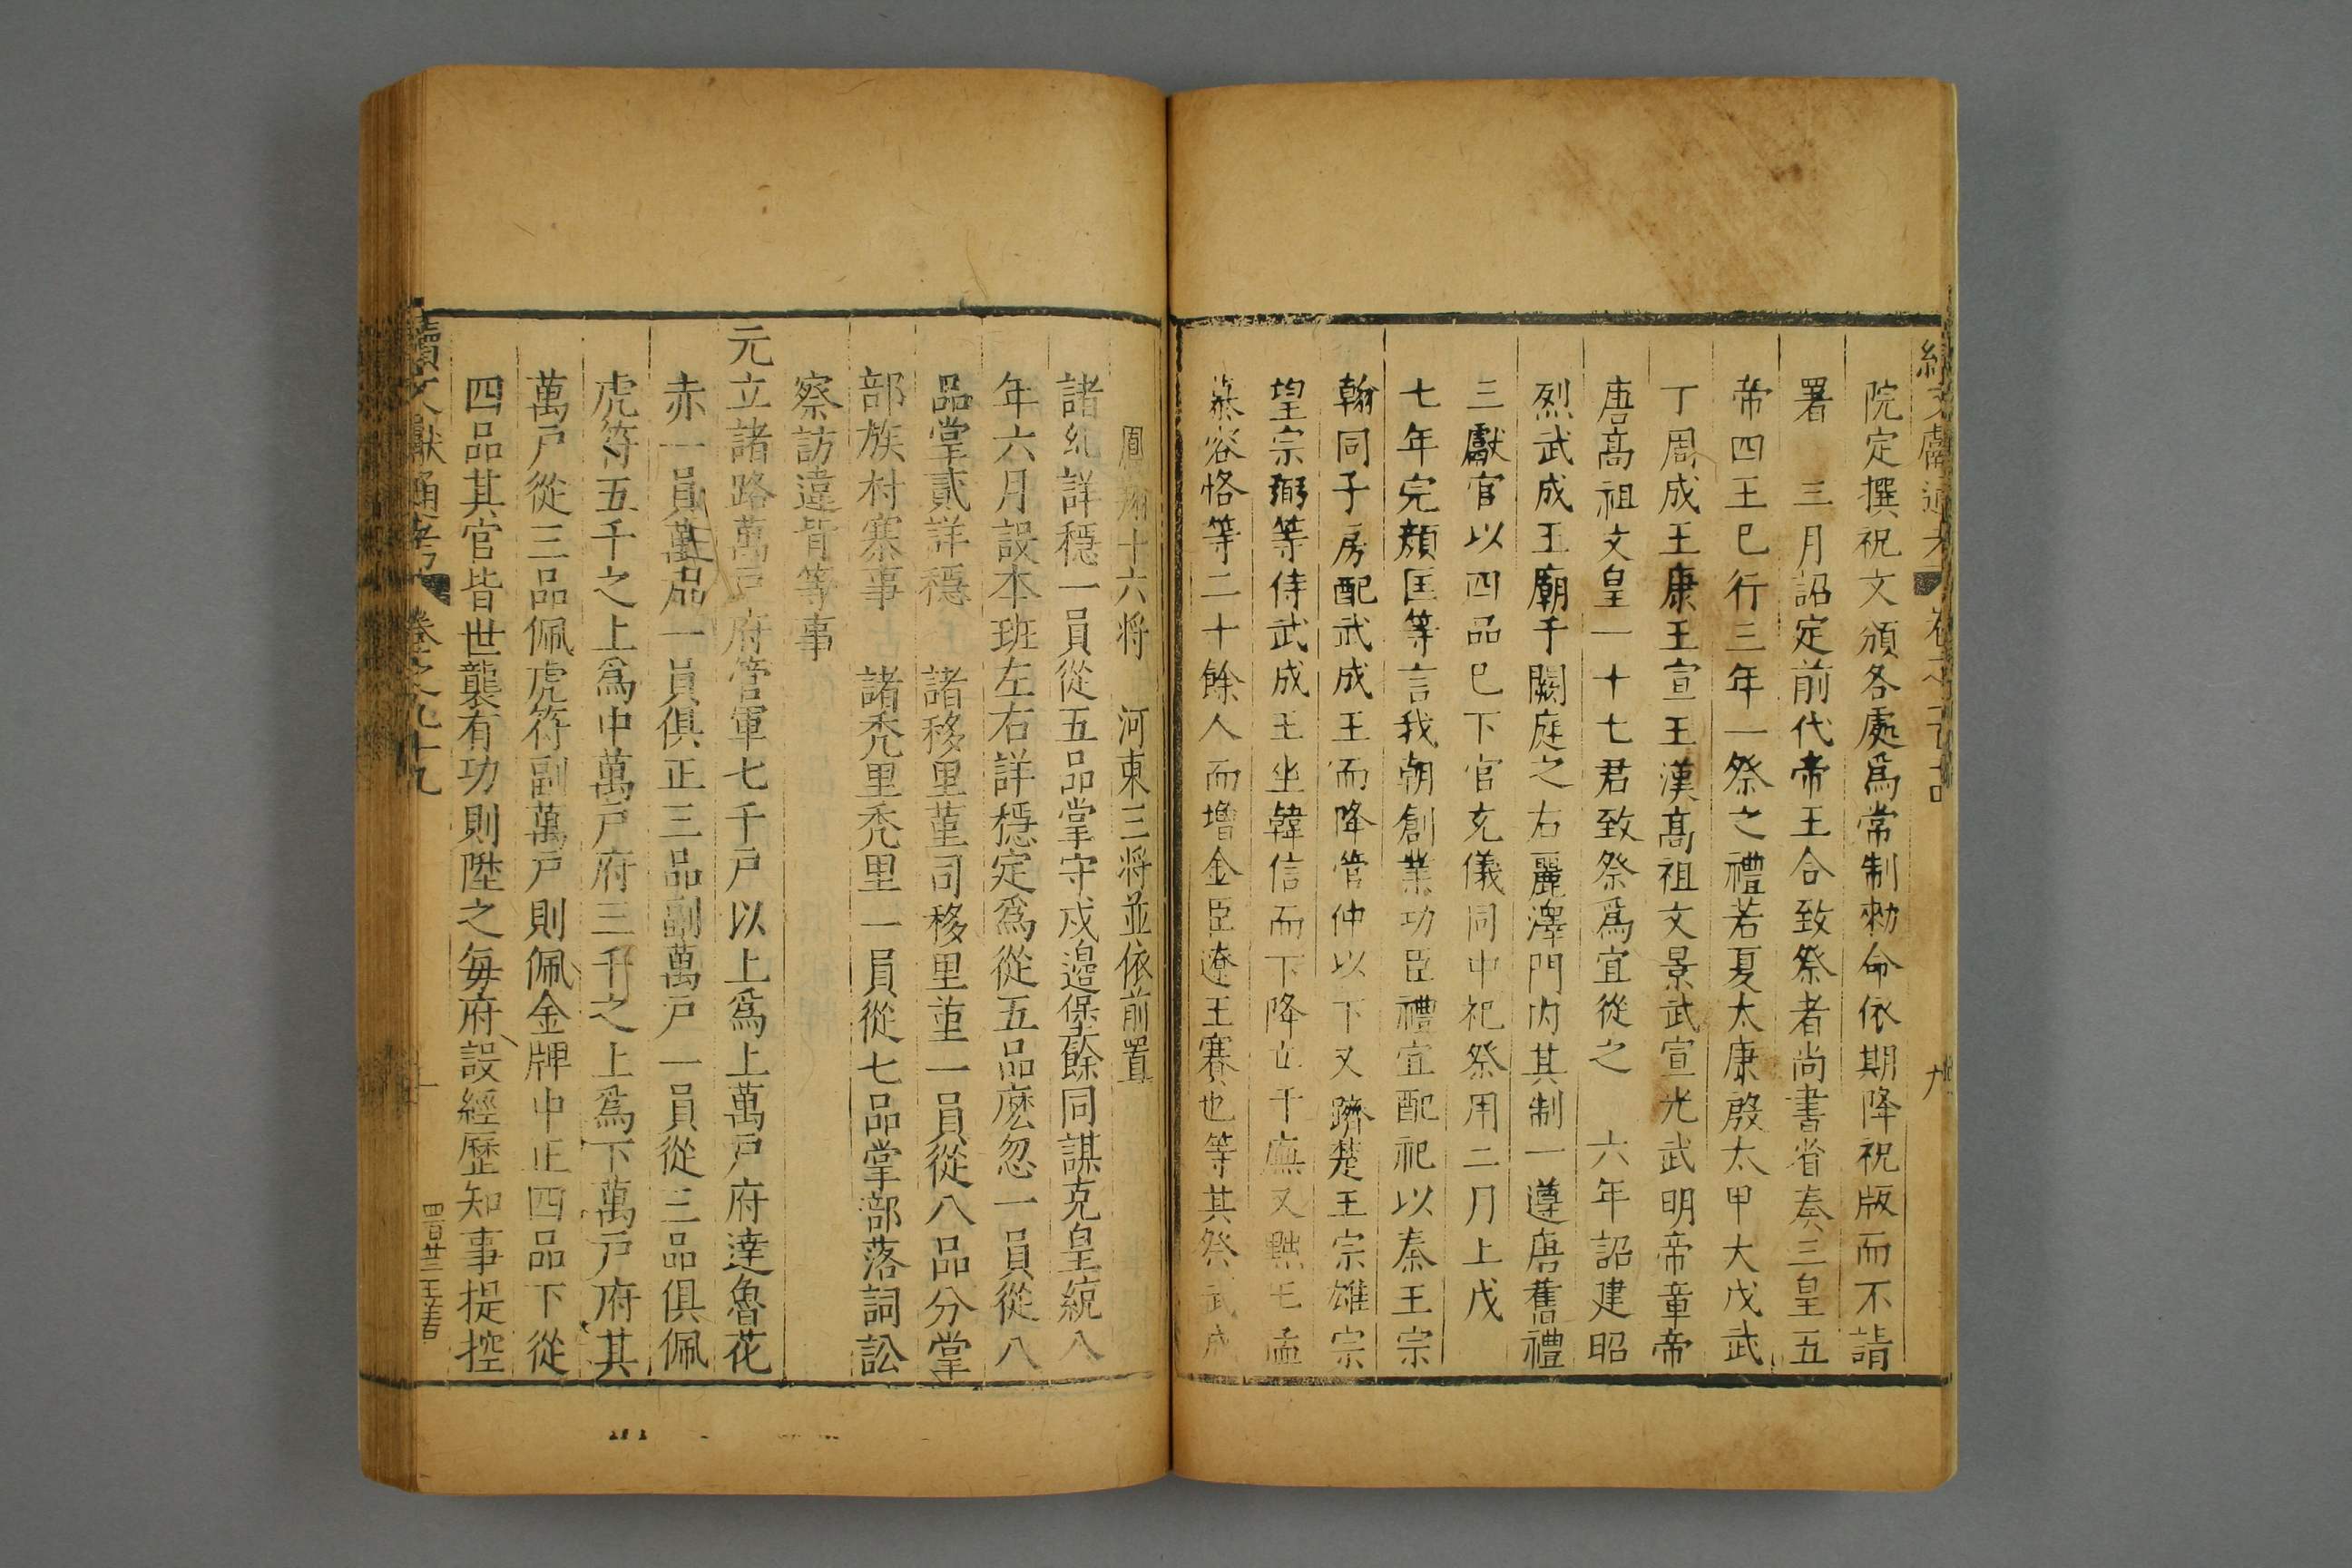 院定撰祝文頒各處爲常制勑命依期降祝版而不請
署　三月詔定前代帝王合致祭者尚書省奏三皇五
帝四王已行三年一祭之禮若夏太康啟太甲大戊武
丁周成王康王宣王漢髙祖文景武宣光武明帝章帝
唐髙祖文皇一十七君致祭爲宜從之　六年詔建昭
烈武成王廟于闕庭之右麗澤門内其制一遵唐舊禮
三獻官以四品已下官充儀同中祀祭用二月上戊
七年完顔匡等言我朝創業功臣禮宜配祀以秦王宗
翰同子房配武成王而降管仲以下又躋楚王宗雄宗
望宗弼等侍武成王坐韓信而下降立于廡又黜王孟
慕容恪等二十餘人而增金臣遼王賽也等其祭武成
鳳翔十六将　河東三将並依前置
諸乣詳穩一員從五品掌守戍邉堡餘同謀克皇統八
年六月設本班左右詳穩定爲從五品麽忽一員從八
品掌貳詳穩　諸移里堇司移里堇一員從八品分掌
部族村寨事　諸禿里禿里一員從七品掌部落詞訟
察訪違背等事
元立諸路萬戸府管軍七千戸以上爲上萬戸府達魯花
赤一員萬品一員俱正三品副萬戸一員從三品俱佩
虎符五千之上爲中萬戸府三千之上爲下萬戸府其
萬戸從三品佩虎符副萬戸則佩金牌中正四品下從
四品其官皆世襲有功則陞之毎府設經歷知事提控
續文獻通考　卷之九十九
四百廿三